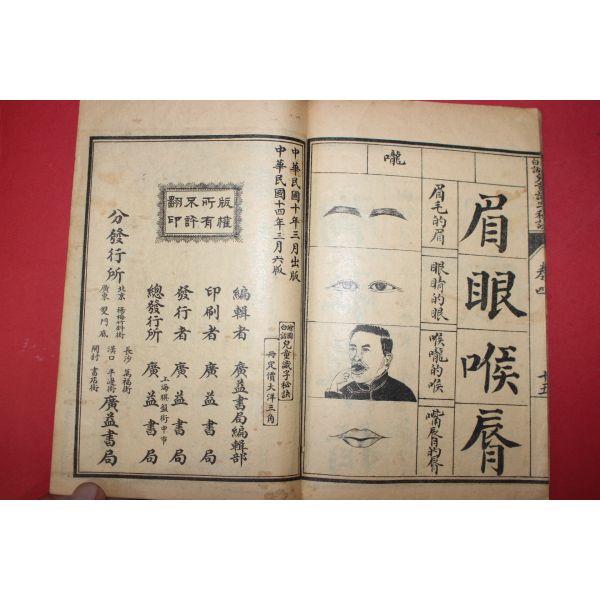 眉眼喉唇
眉毛的眉
眼睛的眼
喉嚨的喉
嘴唇的唇
嚨
卷四
十五
中華民國十年三月出版
中華民國十四年三月六版
繪圖
白話
兒童識字秘訣
冊定價大洋三角
版權
所有
不許
翻印
編輯者 廣益書局編輯部
印刷者 廣益書局
發行者 廣益書局
總發行所 上海棋盤街中市 廣益書局
分發行所
北京 楊梅竹斜街
廣東 雙門底
長沙 萬福街
漢口
開封 書店街
廣益書局